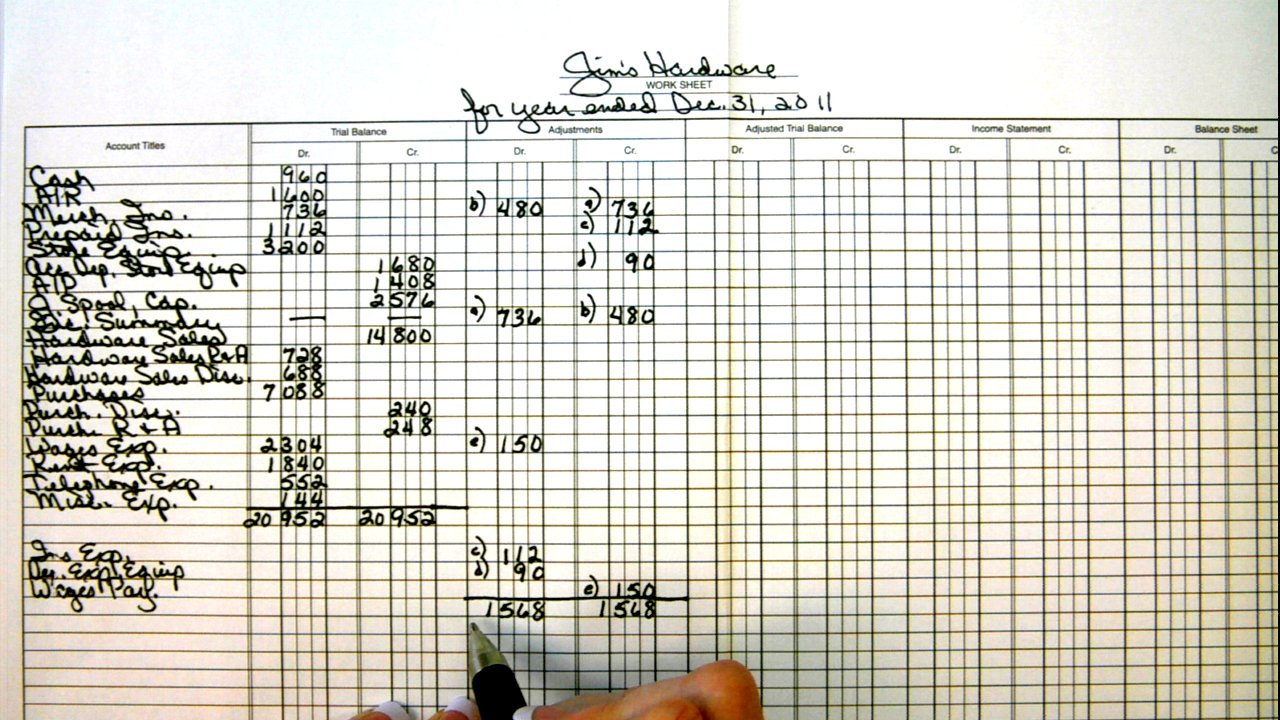 Jim's Hardware
WORK SHEET
for year ended Dec. 31, 2011
Account Titles Trial Balance Adjustments Adjusted Trial Balance Income Statement Balance Sheet
Dr. Cr. Dr. Cr. Dr. Cr. Dr. Cr. Dr. C
Cash 960
A/R 1600
Merch. Inv. 736 b) 480 a) 736
Prepaid Ins. 1112 c) 112
Store Equip. 3200
Acc. Dep. Store Equip 1680 d) 90
A/P 1408
J. Spool, Cap. 2576
Inc. Summary — — a) 736 b) 480
Hardware Sales 14800
Hardware Sales R+A 728
Hardware Sales Disc. 688
Purchases 7088
Purch. Disc. 240
Purch. R+A 248
Wages Exp. 2304 e) 150
Rent Exp. 1840
Telephone Exp. 552
Misc. Exp. 144
20952 20952
Ins Exp. c) 112
Dep. Exp. Equip d) 90
Wages Pay. e) 150
1568 1568